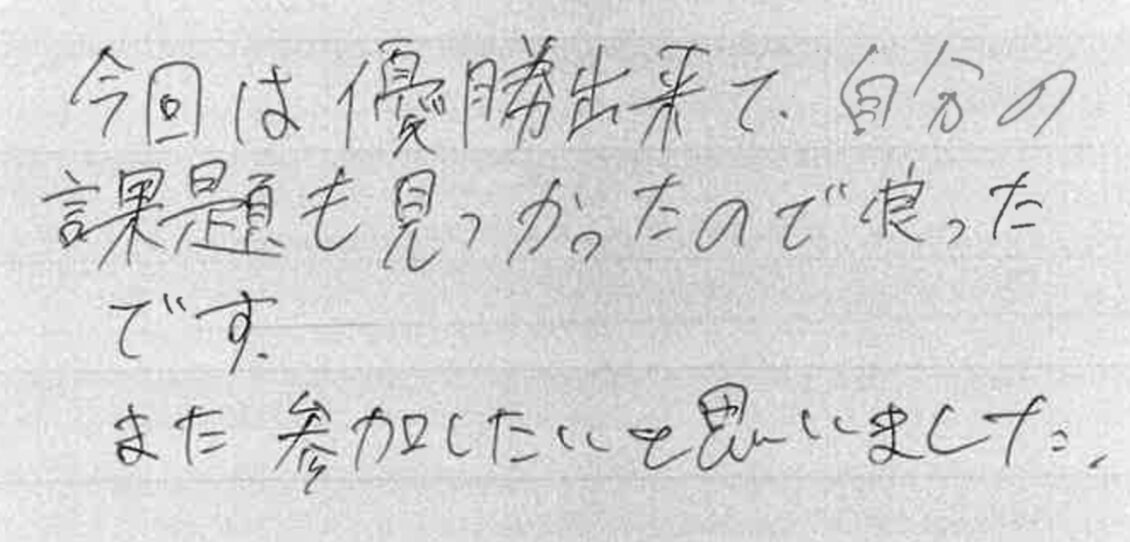 今回は優勝出来て、自分の
課題も見つかったので良った
です。
また参加したいと思いました。